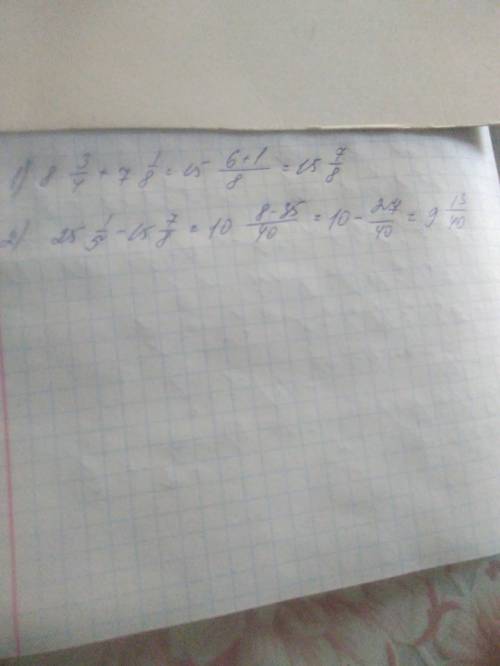 1) 8 3/4 + 7 1/8 = 15 (6+1)/8 = 15 7/8
2) 25 1/5 - 15 7/8 = 10 (8-35)/40 = 10 - 27/40 = 9 13/40